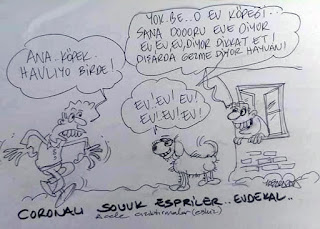 ANA.. KÖPEK
HAVLIYO BİRDE!
YOK.BE..O EV KÖPEĞİ.
SANA DOOORU EVE DİYOR
EV EV, EV, DİYOR DİKKAT ET!
DIŞARDA GEZME DİYOR HAYVAN!
EV! EV! EV!
EV! EV! EV!
CORONALI SOUUK ESPRİLER.. EVDEKAL..